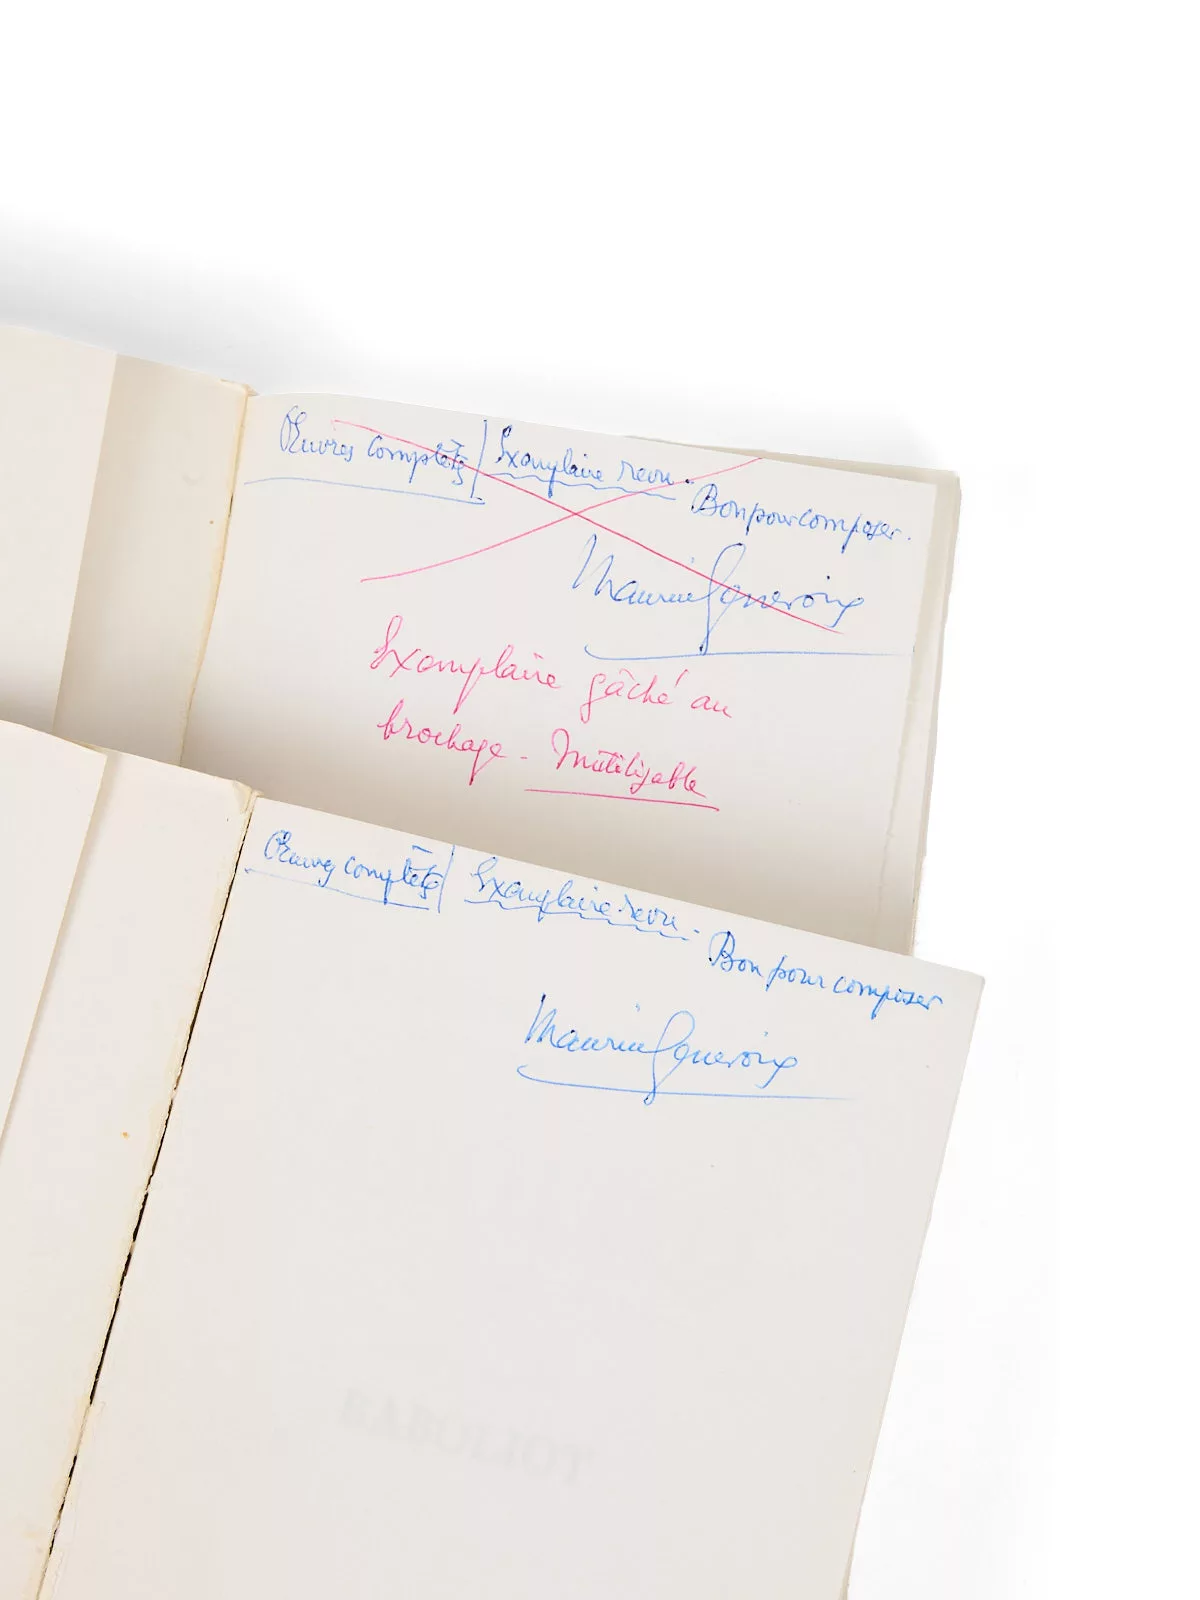 Œuvres complètes | Exemplaire revu.
Bon pour composer.
Maurice Genevoix
Exemplaire gâché au
brochage - Inutilisable
Œuvres complètes | Exemplaire revu.
Bon pour composer
Maurice Genevoix
RABOLIOT